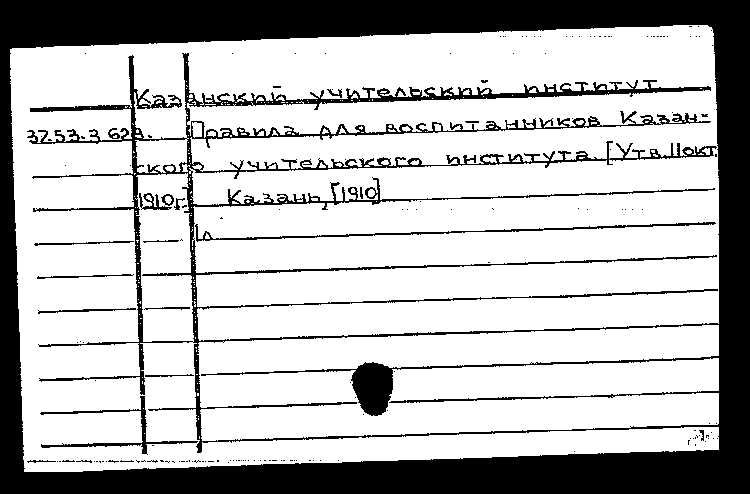 Казанский учительский институт
37.53.3 628. Правила для воспитанников Казан-
ского учительского института. [Утв. 11 окт
1910г.] Казань, [1910]